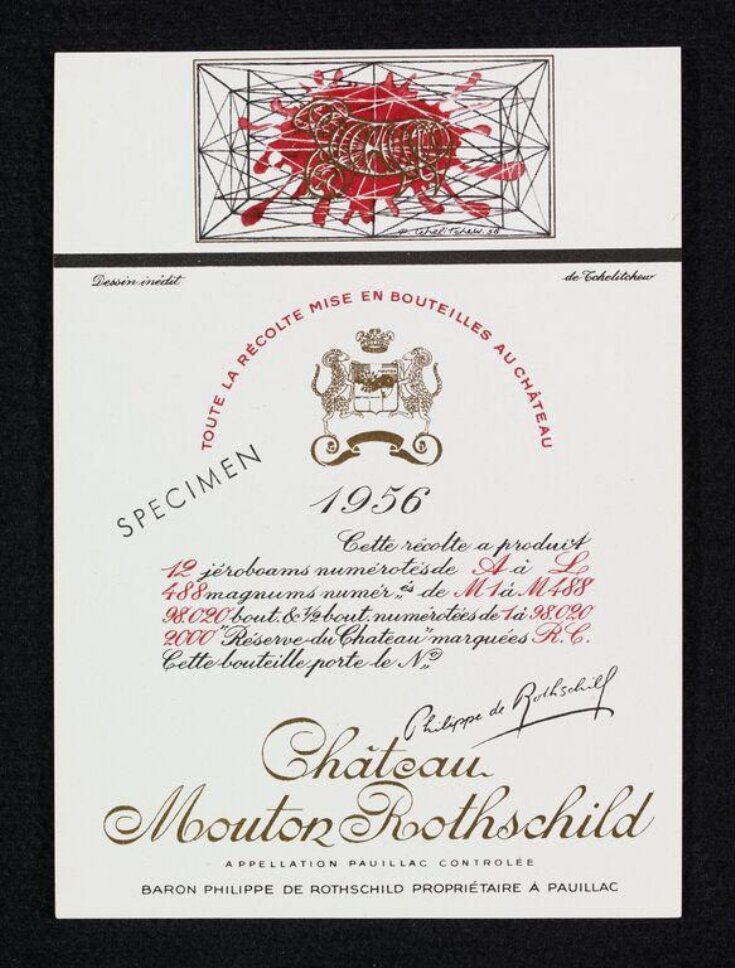 P. Tchelitchew. 56
Dessin inédit
de Tchelitchew
TOUTE LA RÉCOLTE MISE EN BOUTEILLES AU CHÂTEAU
SPECIMEN
1956
Cette récolte a produit
12 jéroboams numérotés de A à L
488 magnums numér,,és de M1 à M488
98.020 bout. & ½ bout. numérotées de 1 à 98.020
2000 "Réserve du Chateau" marquées R.C.
Cette bouteille porte le No
Philippe de Rothschild
Château
Mouton Rothschild
APPELLATION PAUILLAC CONTROLÉE
BARON PHILIPPE DE ROTHSCHILD PROPRIÉTAIRE À PAUILLAC